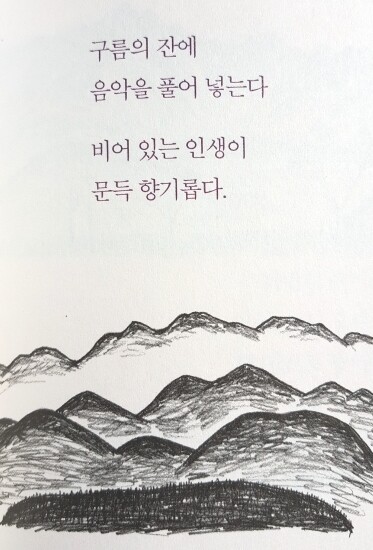 구름의 잔에
음악을 풀어 넣는다
비어 있는 인생이
문득 향기롭다.